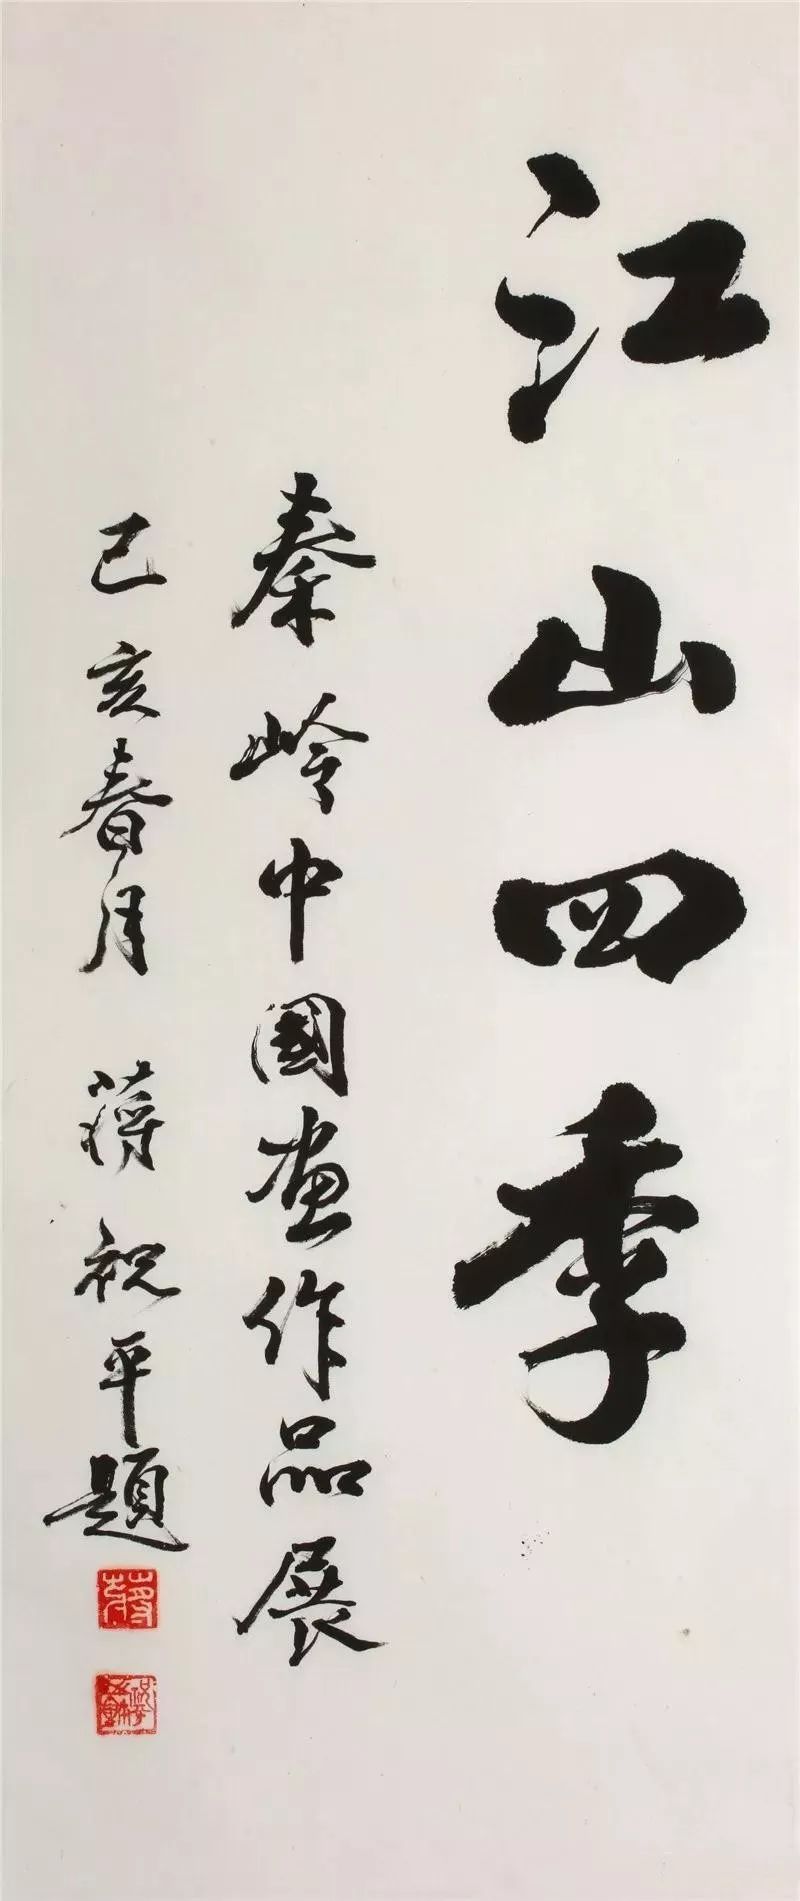 江山四季
秦岭中國画作品展
己亥春月 蒋祝平題